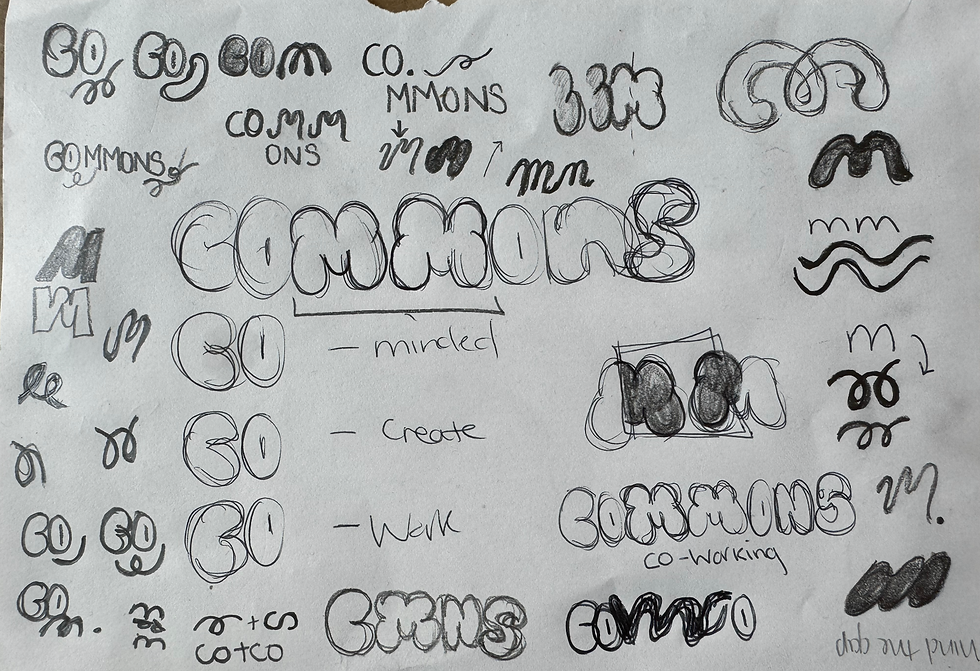 CO,
CO,
COM
CO.
MMONS
COMM
ONS
COMMONS
m
mn
COMMONS
mm
CO - minded
m
CO - Create
CO - Work
COMMONS
co-working
m.
CO,
CO,
CO
m.
+
CO+CO
CMNS
mind the gap